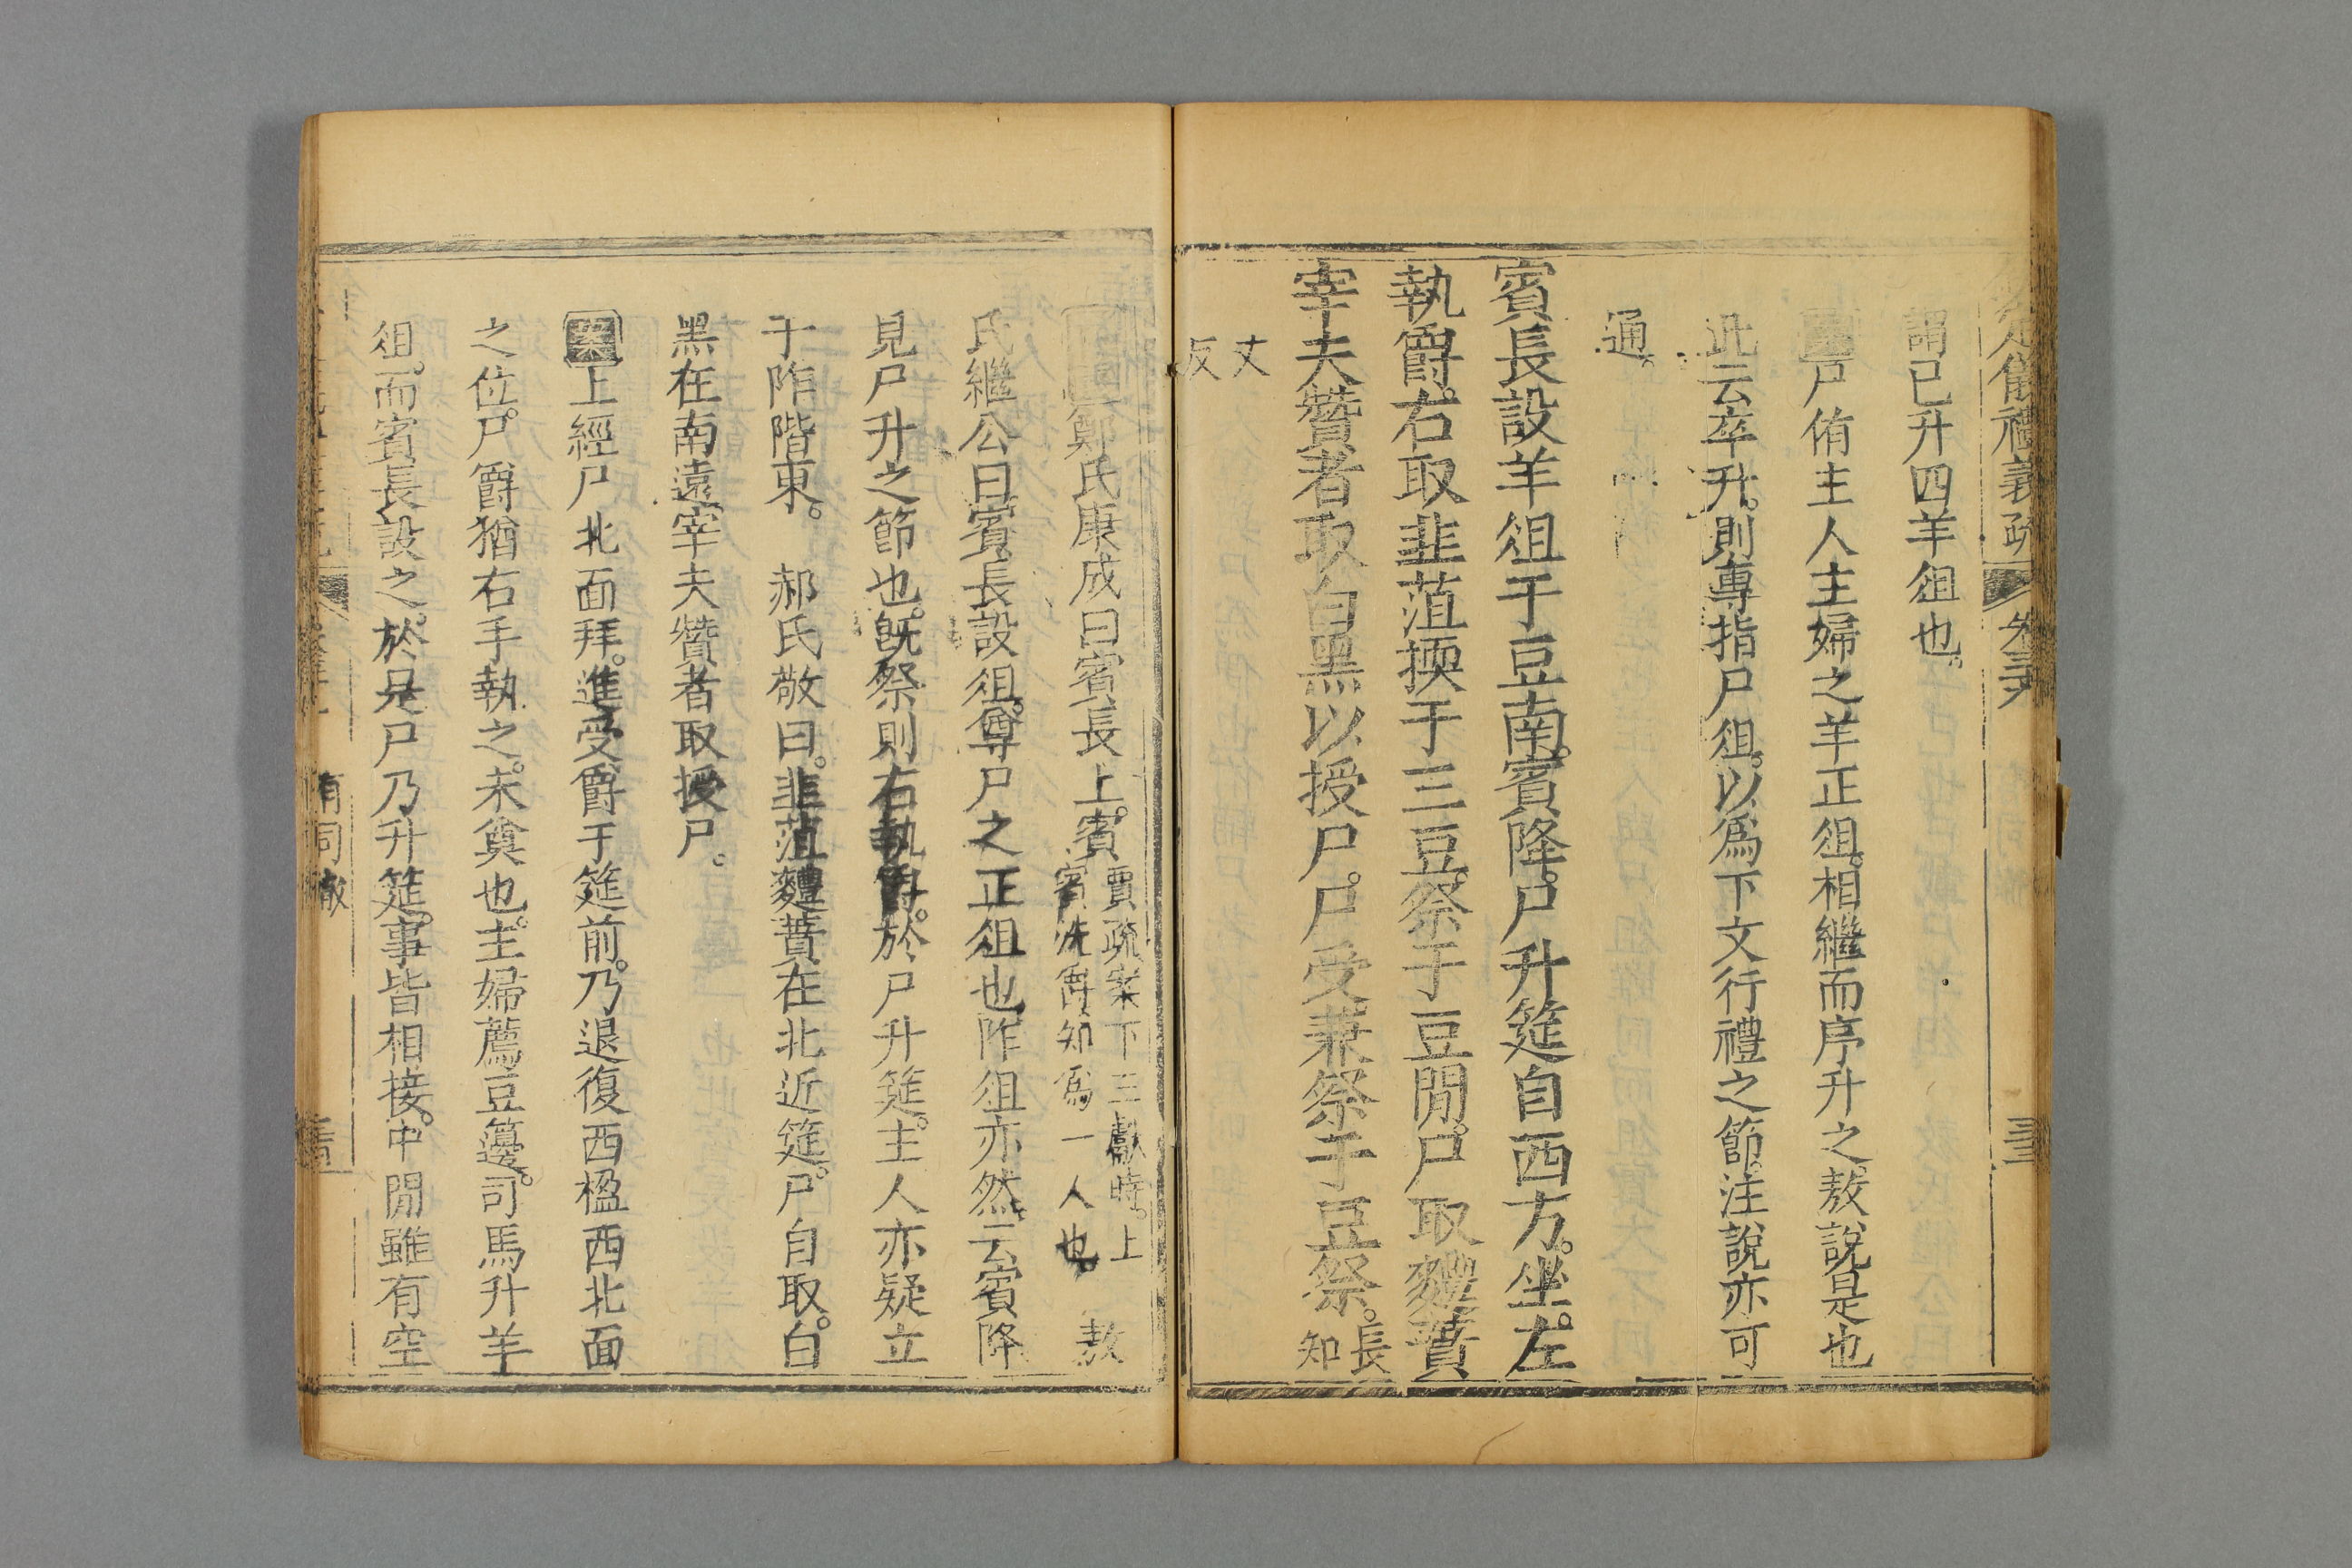 定儀禮義疏
卷三六
三三
謂已升四羊俎也。
案尸侑主人主婦之羊正俎。相繼而序升之。敖說是也
此云卒升。則專指尸俎。以爲下文行禮之節。注說亦可
通。
賓長設羊俎于豆南。賓降。尸升筵自西方。坐。左
執爵。右取韭菹擩于三豆。祭于豆閒。尸取麷蕡
宰夫贊者取白黑以授尸。尸受兼祭于豆祭。長
知
丈
反
鄭氏康成曰賓長上。賓
賈疏案下三獻時。上
賓洗爵知爲一人也。
敖
氏繼公曰賓長設俎。尊尸之正俎也阼俎亦然。云賓降
見尸升之節也。旣祭則右執爵。於尸升筵。主人亦疑立
于阼階東。 郝氏敬曰。韭菹麷蕡在北近筵。尸自取。白
黑在南遠宰夫贊者取授尸。
案上經尸北面拜。進受爵于筵前。乃退復西楹西北面
之位。尸爵猶右手執之。未奠也。主婦薦豆籩。司馬升羊
俎。而賓長設之。於是尸乃升筵。事皆相接。中閒雖有空
有司徹